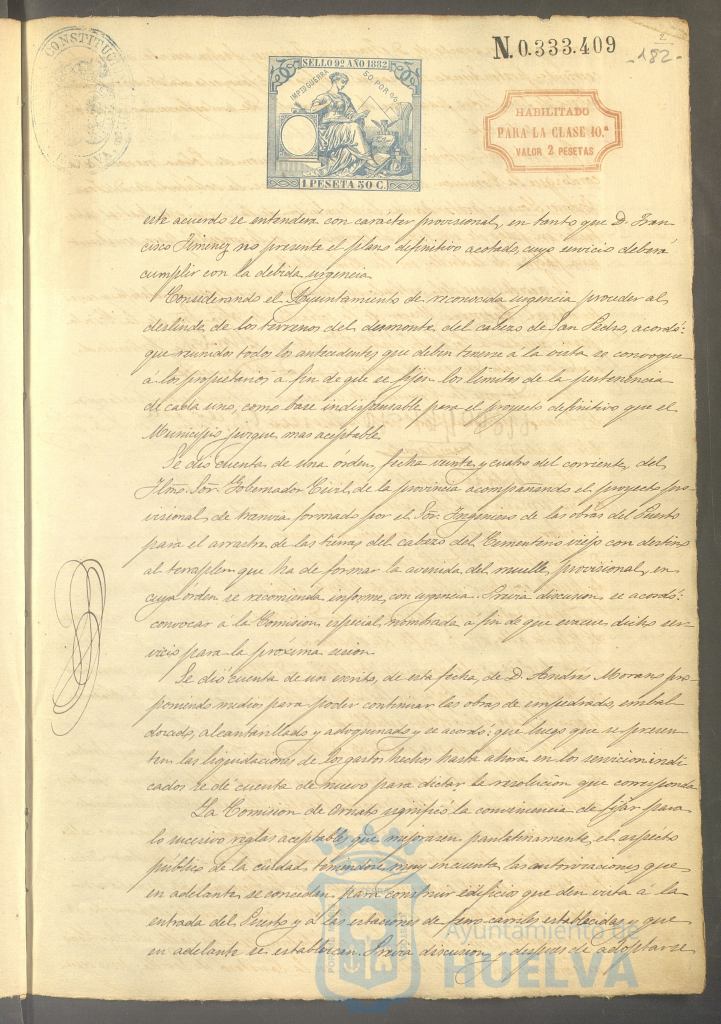 CONSTITUC
N. 0.333.409
2
-182-
SELLO 9º AÑO 1882
IMPTO GUERRA 50 POR %
1 PESETA 50 C.
HABILITADO
PARA LA CLASE 10.ª
VALOR 2 PESETAS
este acuerdo se entenderá con carácter provisional, en tanto que D. Fran-
cisco Jimenez no presente el plano definitivo acotado, cuyo servicio deberá
cumplir con la debida urgencia.
Considerando el Ayuntamiento de reconocida urgencia proceder al
deslinde de los terrenos del desmonte del cabezo de San Pedro, acordó:
que reunidos todos los antecedentes que deben tenerse á la vista se convoque
á los propietarios á fin de que se fijen los límites de la pertenencia
de cada uno, como base indispensable para el proyecto definitivo que el
Municipio juzgue mas aceptable.
Se dió cuenta de una órden, fecha veinte y cuatro del corriente, del
Iltmo. Sor. Gobernador Civil de la provincia acompañando el proyecto pro-
visional de tranvia formado por el Sor. Ingeniero de las obras del Puerto
para el arrastre de las tierras del cabezo del Cementerio viejo con destino
al terraplen que ha de formar la avenida del muelle provisional, en
cuya órden se recomienda informe con urgencia. Previa discusion se acordó:
convocar á la Comision especial nombrada á fin de que evacue dicho ser-
vicio para la proxima sesion.
Se dió cuenta de un escrito, de esta fecha, de D. Andrés Morano pro-
poniendo medios para poder continuar las obras de empedrado, embal-
dosado, alcantarillado y adoquinado y se acordó: que luego que se presen-
ten las liquidaciones de los gastos hechos hasta ahora en los servicios indi-
cados se dé cuenta de nuevo para dictar la resolucion que corresponda.
La Comision de Ornato significó la conveniencia de fijar para
lo sucesivo reglas aceptables que mejorasen paulatinamente el aspecto
público de la ciudad, teniendose muy en cuenta las autorizaciones que
en adelante se concedan para construir edificios que den vista á la
entrada del Puerto y á las estaciones de ferro-carriles establecidas y que
en adelante se establezcan. Previa discusion y despues de adoptarse
Ayuntamiento de
HUELVA